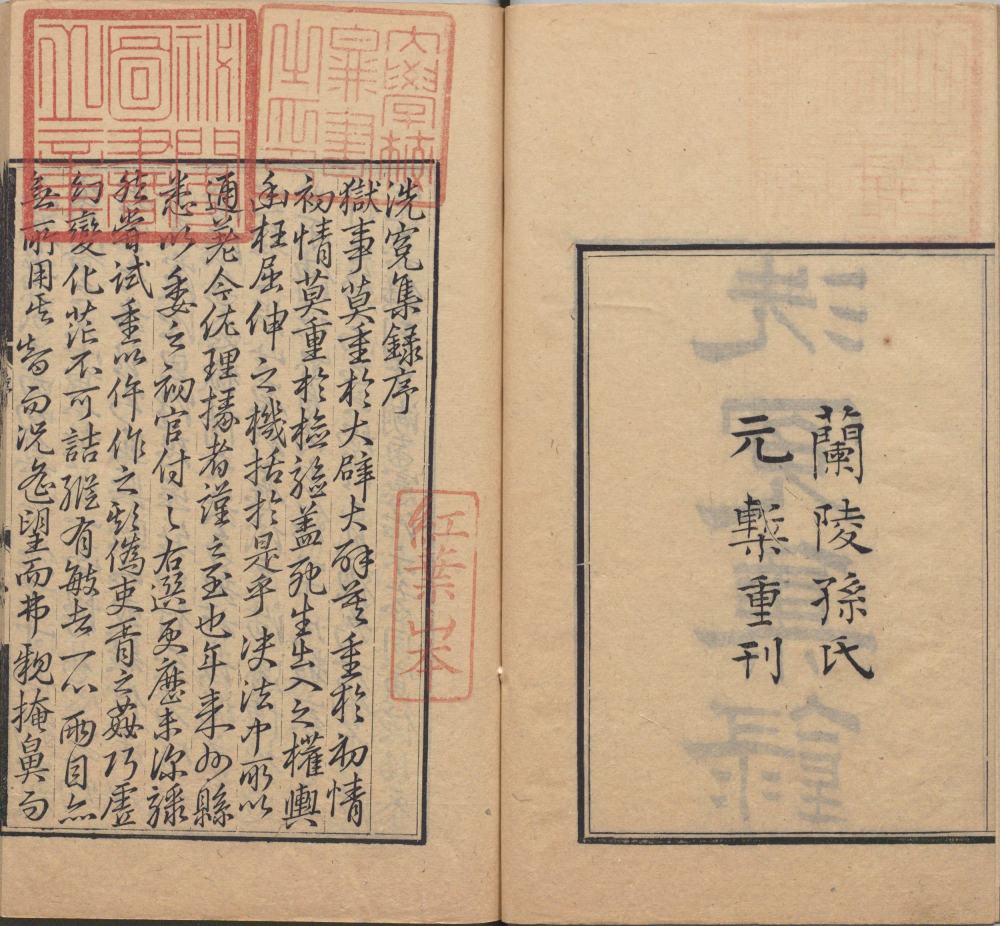 蘭陵孫氏
元槧重刊
洗寃集録序
獄事莫重於大辟大辟莫重於初情
初情莫重於檢驗蓋死生出入之權輿
幽枉屈伸之機括於是乎決法中所以
通差今佐理掾者謹之至也年来州縣
悉以委之初官付之右選更歷未深驟
然嘗試重以仵作之欺僞吏胥之姦巧虛
幻變化茫不可詰縱有敏者一心兩目亦
無所用其智而況遙望而弗親掩鼻而
大學校
之印
秘閣
圖書
之章
紅葉山本